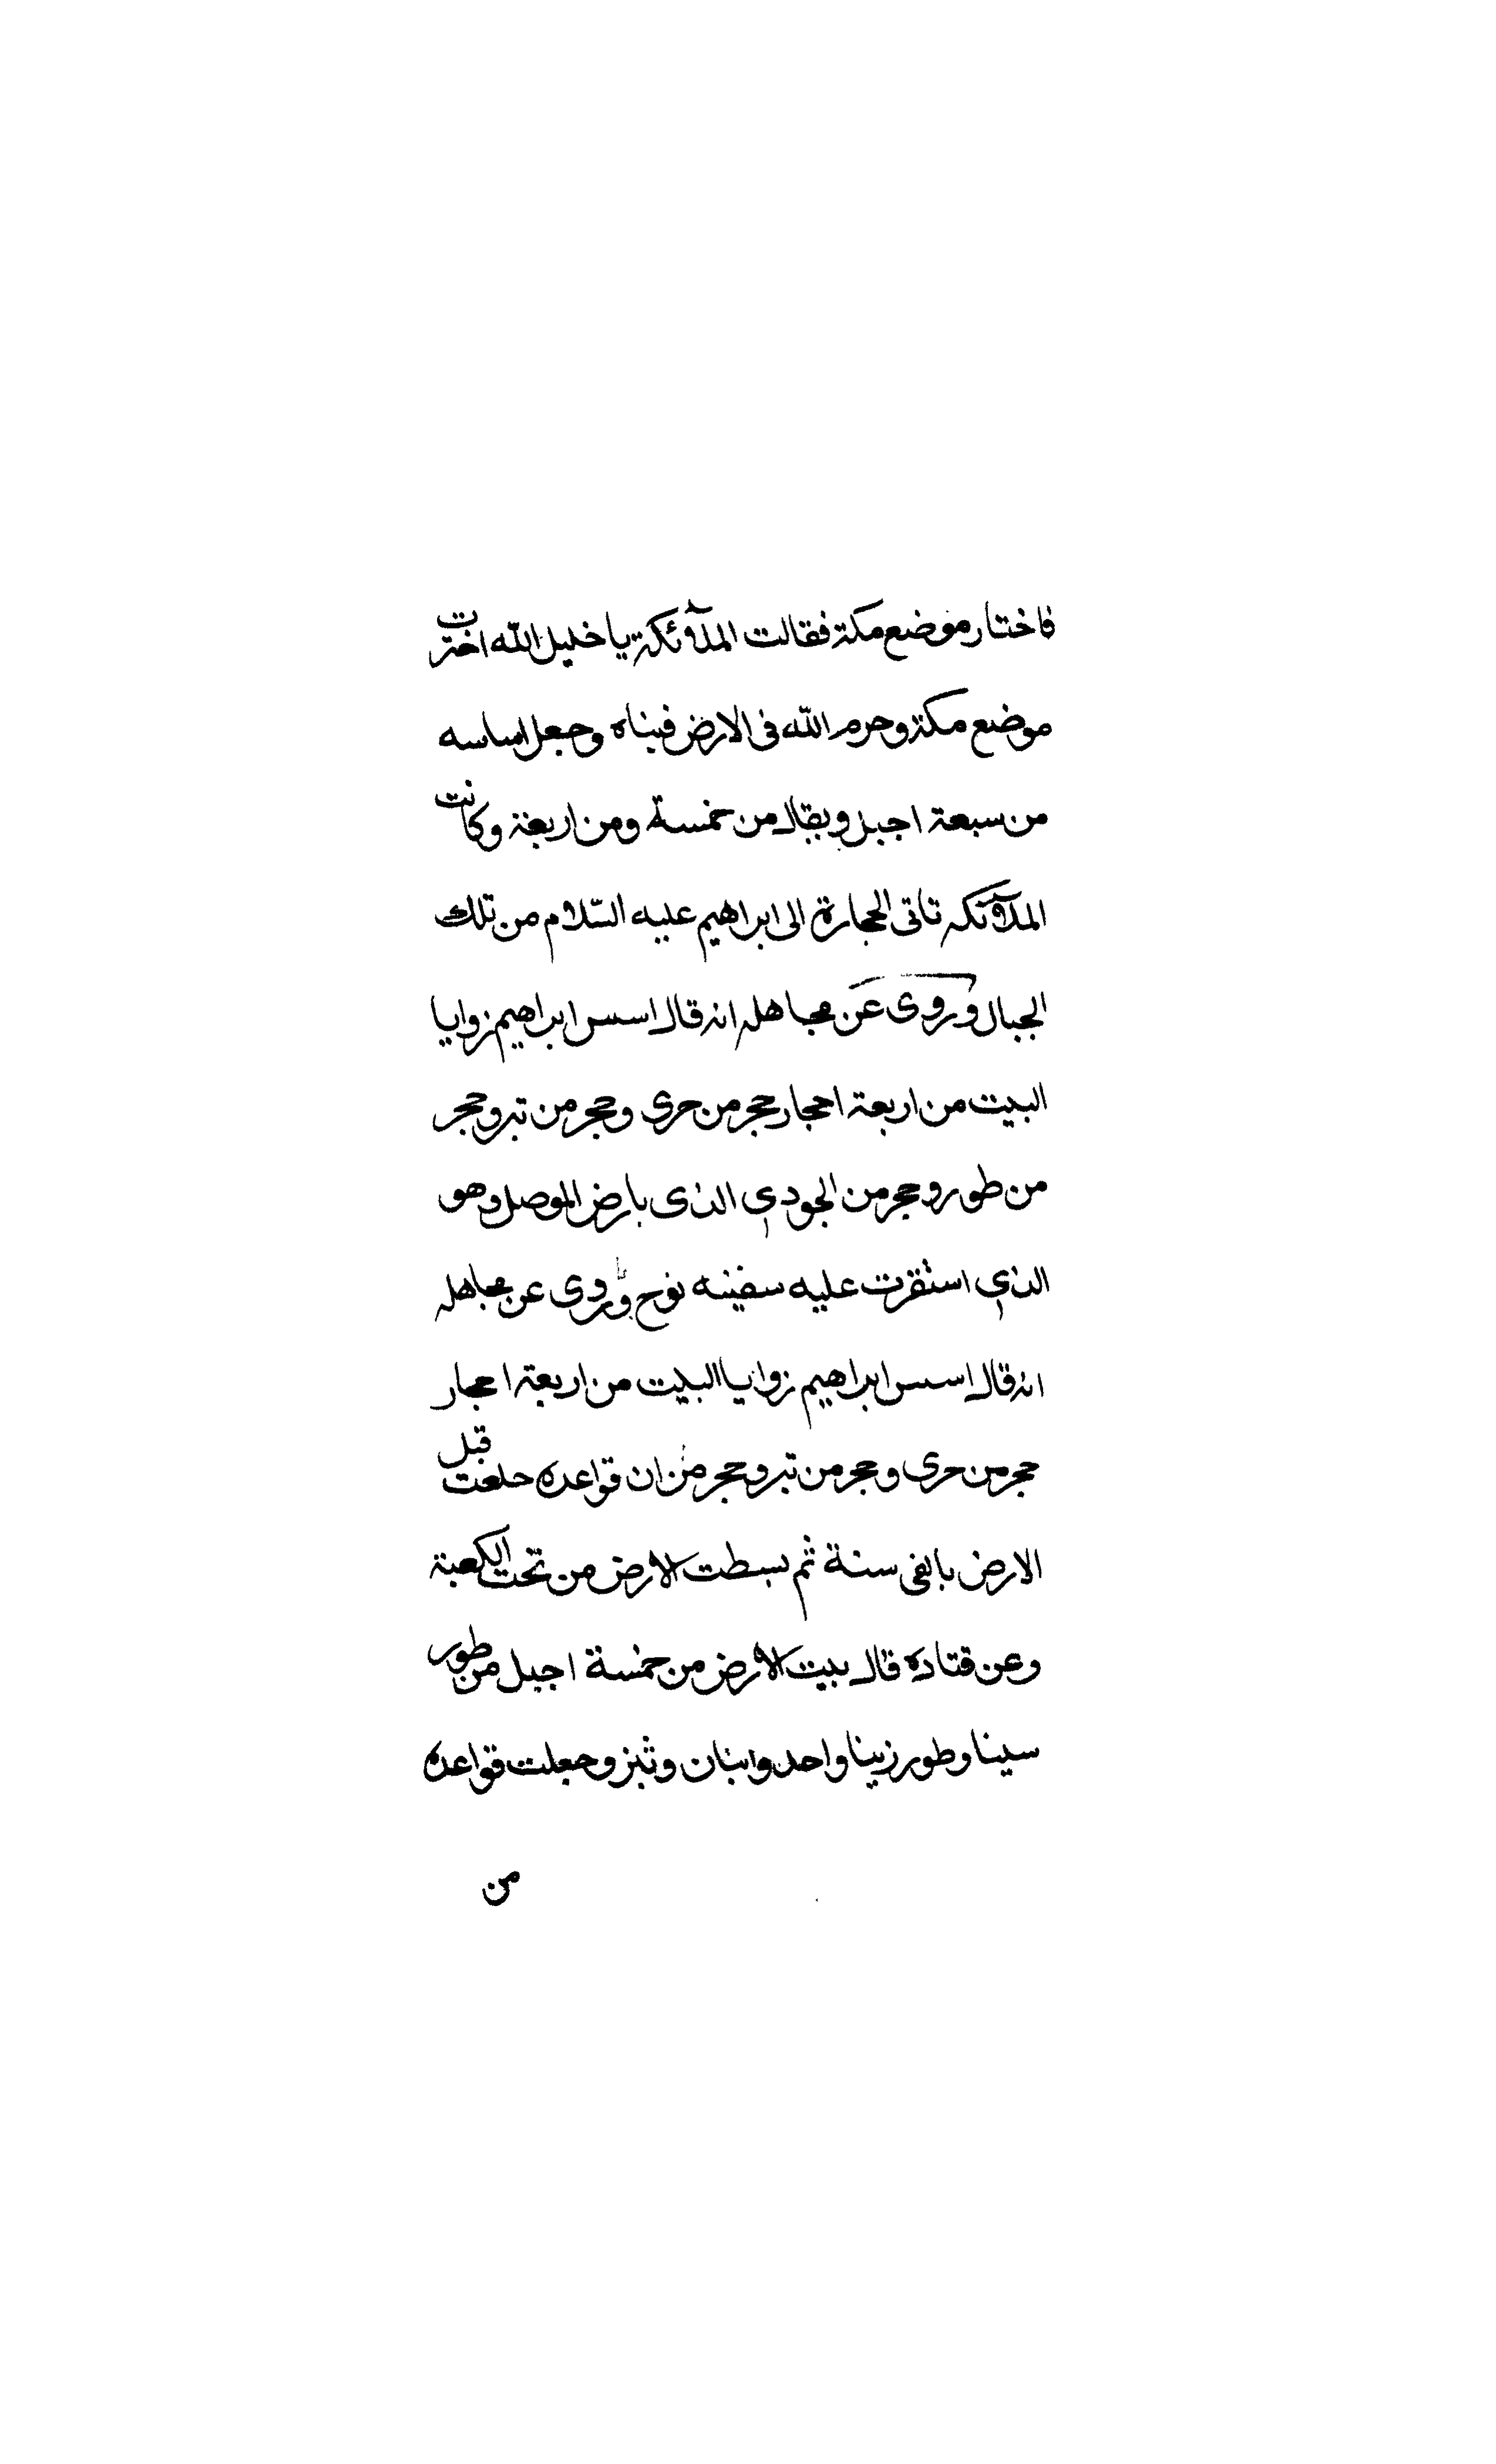 فاختار موضع مكة فقالت الملآئكة يا خليل الله اخترت
موضع مكة وحرم الله فى الارض فبناه وجعل اساسه
من سبعة اجبل ويقال من خمسة ومن اربعة وكانت
الملآئكه تاتى الحجارة الى ابراهيم عليه السّلام من تلك
الجبال وروى عن مجاهد انه قال اسس ابراهيم زوايا
البيت من اربعة احجار حجر من حرى وحجر من تبر وحجر
من طور وحجر من الجودي الذى بارض الموصل وهو
الذي استقرت عليه سفينه نوح وروى عن مجاهد
انه قال اسس ابراهيم زوايا البيت من اربعة احجار
حجر من حرى وحجر من تبر وحجر من ان قواعده خلعت قبل
الارض بالفى سنة ثم بسطت الارض من تحت الكعبة
وعن قتاده قال بيت الارض من خمسة اجبل من طور
سينا وطور زيتا واحد وابنان وثبز وجعلت قواعده
من